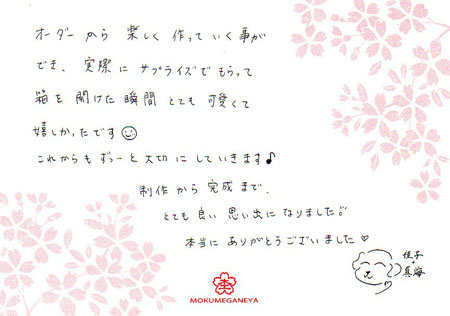 オーダーから 楽しく 作って いく事が
でき、実際に サプライズで もらって
箱を 開けた瞬間 とても 可愛くて
嬉しかったです
これからも ずっーと大切に していきます♪
制作から 完成まで、
とても 良い 思い出に なりました!!
本当に ありがとうございました♡
佳子
真海
MOKUMEGANEYA